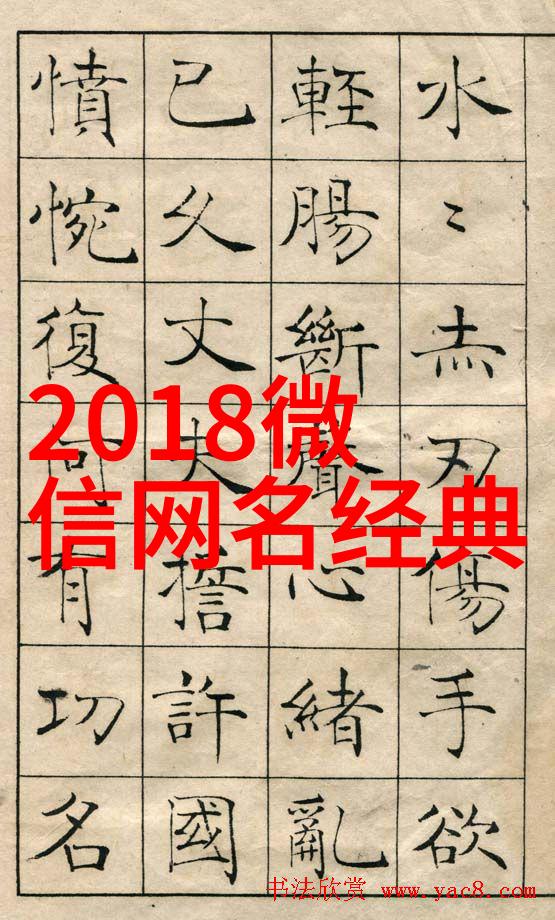 水〻赤刃傷手欲
輕腸斷聲心緒亂
已久丈夫誓許國
憤惋復何有功名
2018微
信网名经典
书法欣赏 www.yac8.com